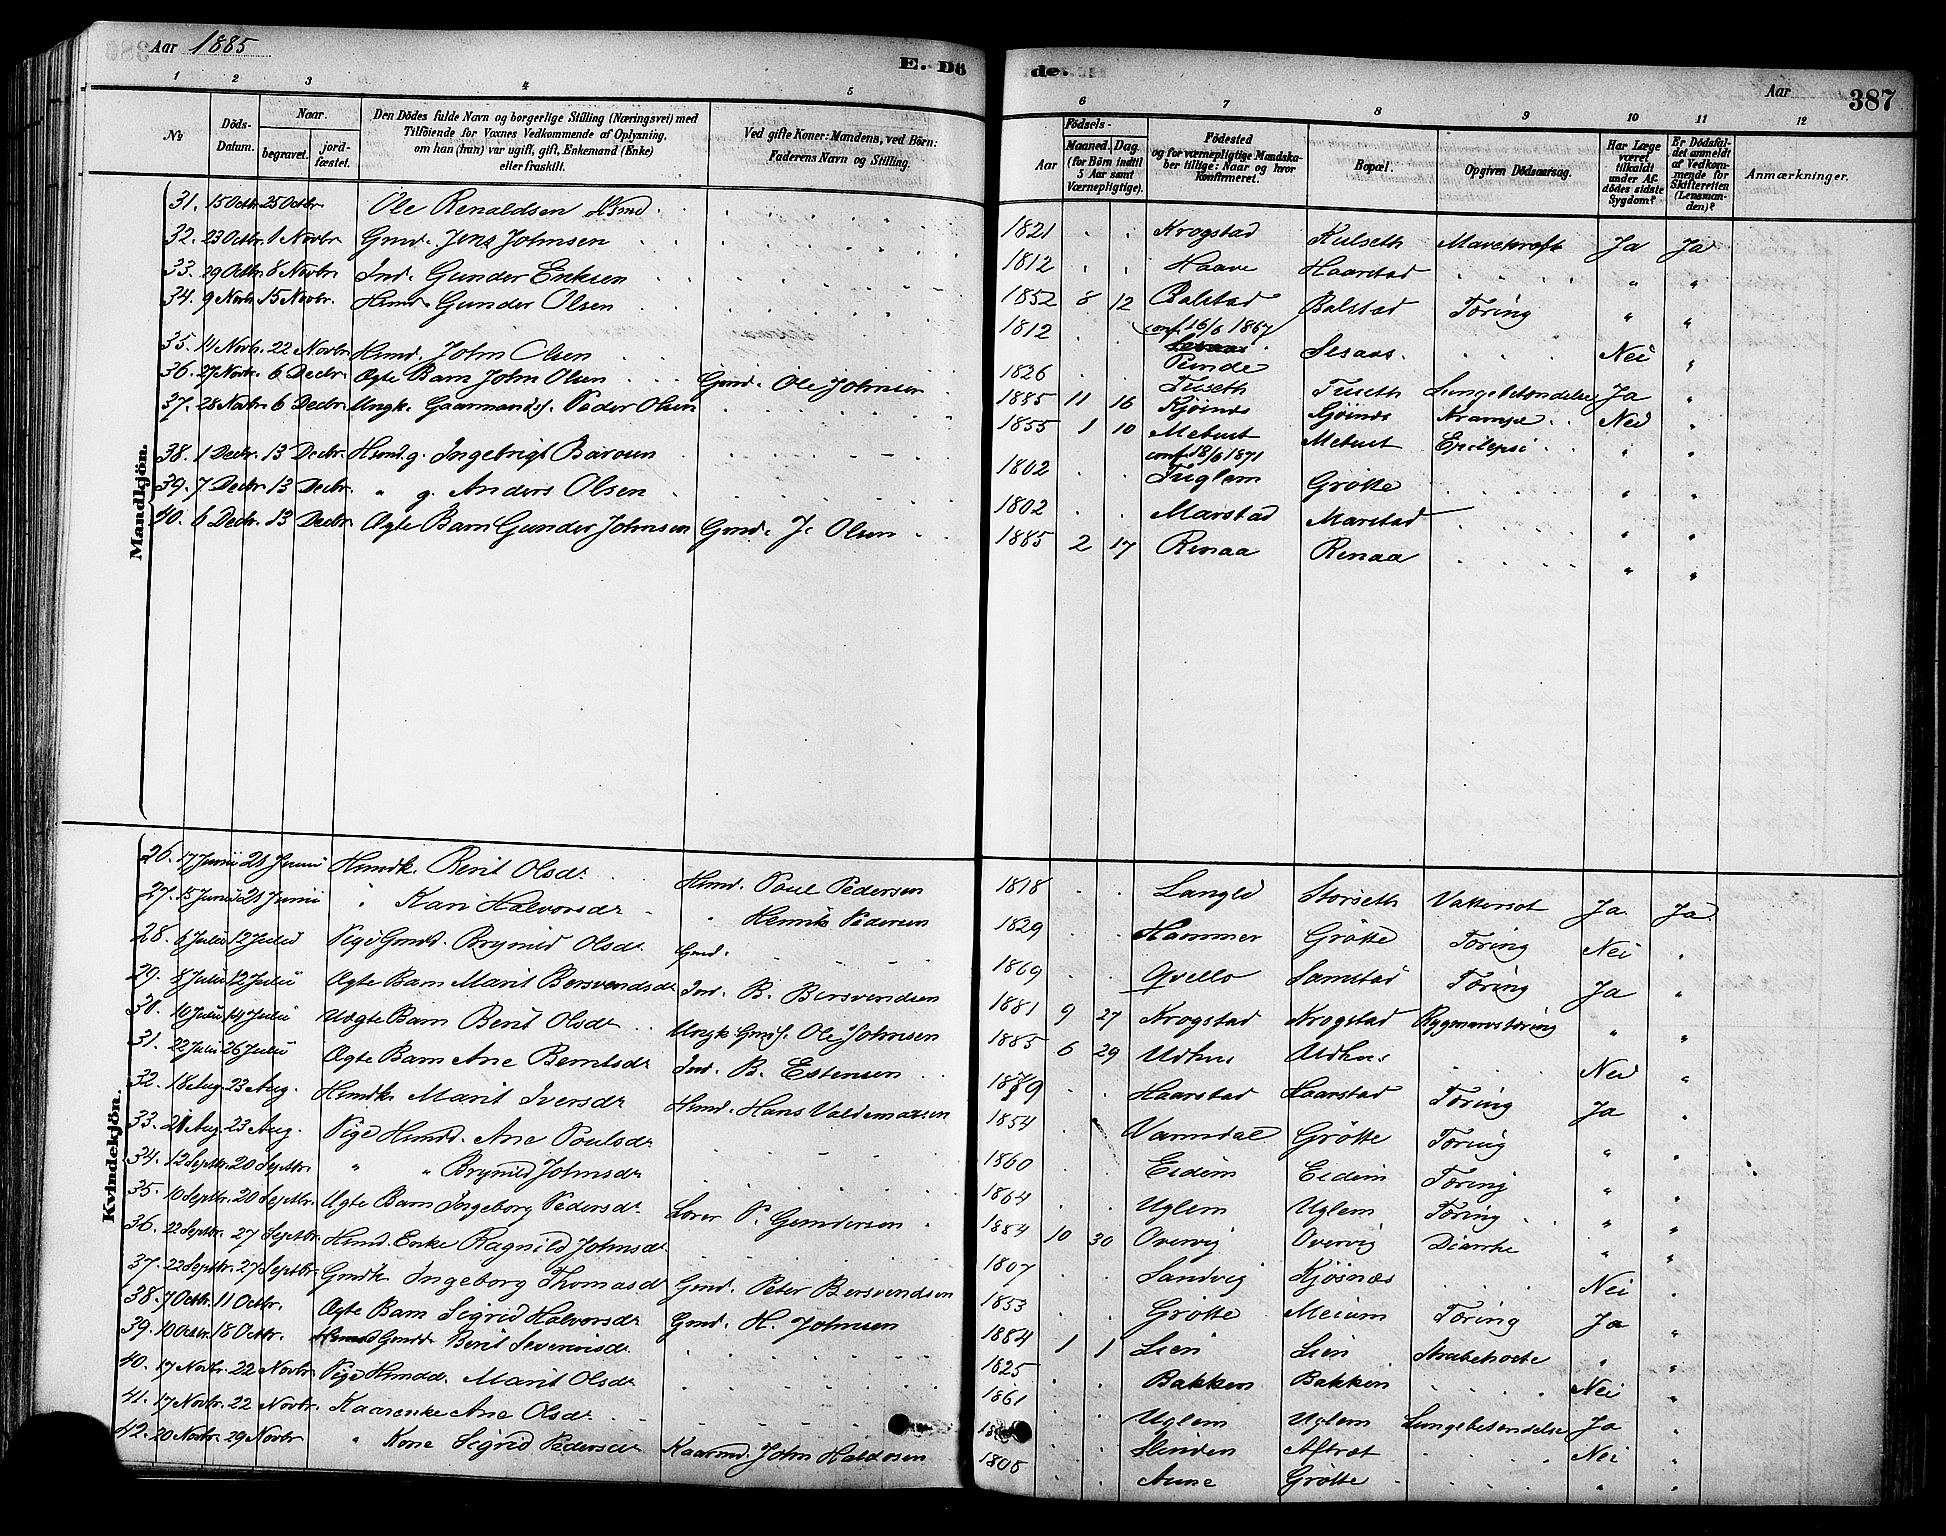 Aar 1885
E. Dö
de.
Aar
387
1 2 3 4 5 6 7 8 9 10 11 12
No
Döds-Datum.
Naar
begravet.
jord-fæstet.
Den Dödes fulde Navn og borgerlige Stilling (Næringsvei) med
Tilföiende for Voxnes Vedkommende af Oplysning,
om han (hun) var ugift, gift, Enkemand (Enke)
eller fraskilt.
Ved gifte Koner: Mandens, ved Börn:
Faderens Navn og Stilling.
Födsels-
Aar
Maaned. Dag.
(for Börn indtil
5 Aar samt
Værnepligtige).
Födested
og for værnepligtige Mandska-
ber tillige: Naar og hvor
Konfirmeret.
Bopæl.
Opgiven Dödsaarsag.
Har Læge
været
tilkaldt
under Af-
dödes sidste
Sygdom?
Er Dödsfal-
det anmeldt
af Vedkom-
mende for
Skifteretten
(Lensman-
den)?
Anmærkninger.
Mandkjön.
31. 15 Octbr. 25 Octbr Ole Renaldsen 1821 Krogstad Kulseth Mavekræft Ja Ja
32. 23 Octbr. 1 Novbr. Gmd. Jens Johnsen 1812 Haave Haarstad " "
33. 29 Octbr 8 Novbr. Ind. Gunder Eriksen 1852 8 12 Balstad Balstad Tæring " "
conf. 16/6 1867
34. 9 Novbr. 15 Novbr. Hmd. Gunder Olsen 1812 Sesaas Nei "
35. 14 Novbr. 22 Novbr Hmd. John Olsen 1826 Tuseth Tuseth Lungebetændelse Ja "
36. 27 Novbr. 6 Decbr. Ægte Barn John Olsen Gmd. Ole Johnsen 1885 11 16 Kjösnæs Kjösnæs Krampe Nei "
37. 28 Novbr. 6 Decbr. Ungk. Gaarmands. Peder Olsen 1855 1 10 Mebust Mebust Epilepsi " "
conf. 18/6 1871
38. 1 Decbr. 13 Decbr. Hmd. g. Ingebrigt Barosen 1802 Fuglem Grötte " "
39. 7 Decbr. 13 Decbr. " g. Anders Olsen 1802 Marstad Marstad " "
40. 6 Decbr. 13 Decbr. Ægte Barn Gunder Johnsen Gmd. J. Olsen 1885 2 17 Renaa Renaa " "
Kvindekjön.
26. 17 Junii 21 Junii Hmdk. Berit Olsdr Hmd. Paul Pedersen 1818 Langli Storseth Vattersot Ja Ja
27. 15 Junii 21 Junii " Kari Halvorsdr " Henrik Pedersen 1829 Hammer Grötte Tæring Nei "
28. 6 Julii 12 Julii Pige Gmd. Brynild Olsdr Gmd. 1869 Qvello Samstad Tæring Ja "
29. 8 Julii 12 Julii Ægte Barn Marit Bersvendsdr Ind. B. Bersvendsen 1881 9 27 Krogstad Krogstad Rygmarvstæring " "
30. 10 Julii 14 Julii Uægte Barn Berit Olsdr Ungk. Gmds. Ole Johnsen 1885 6 29 Udhus Udhus Nei "
31. 22 Julii 26 Julii Ægte Barn Ane Berntsdr Ind. B. Estensen 1879 Haarstad Haarstad Tæring Ja "
32. 18 Aug. 23 Aug. Hmdk. Marit Iversdr Hmd. Hans Valdemarsen 1854 Vamsdal Grötte Tæring " "
33. 21 Aug. 23 Aug. Pige Hmdd. Ane Poulsdr 1860 Eidem Eidem Tæring " "
34. 12 Septbr. 20 Septbr. " " Brynild Johnsdr 1864 Uglem Uglem Tæring " "
35. 10 Septbr. 20 Septbr. Ægte Barn Ingeborg Pedersdr Lærer P. Gundersen 1884 10 30 Overvig Overvig Diarrhe " "
36. 22 Septbr. 27 Septbr. Hmd. Enke Ragnild Johnsdr 1807 Sandvig Kjösnæs Nei "
37. 22 Septbr. 27 Septbr. Gmdk. Ingeborg Thomasdr Gmd. Peter Bersvendsen 1853 Grötte Meium Tæring Ja "
38. 7 Octbr. 11 Octbr. Ægte Barn Sigrid Halvorsdr Gmd. H. Johnsen 1884 1 1 Lien Lien Strubehoste " "
39. 10 Octbr. 18 Octbr. Gmdd. Berit Severinsdr 1825 Bakken Bakken Nei "
40. 17 Novbr. 22 Novbr. Pige Hmdd. Marit Olsdr 1861 Uglem Uglem Lungebetændelse Ja "
41. 17 Novbr. 22 Novbr. Kaarenke Ane Olsdr Slinden Aftret Nei "
42. 20 Novbr. 29 Novbr " Kone Sigrid Pedersdr Kaarmd. John Haldosen 1808 Aune Grötte " "